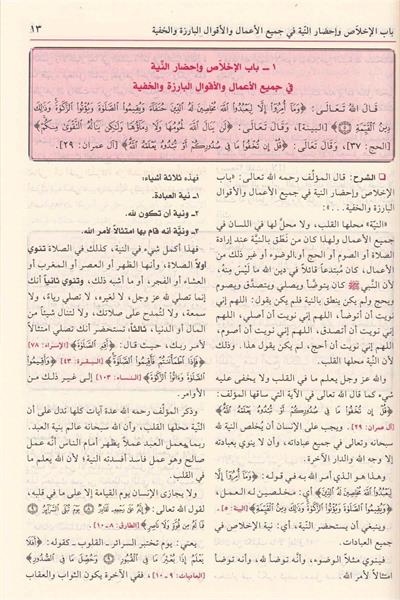 باب الإخلاص وإحضار النيّة في جميع الأعمال والأقوال البارزة والخفية
١٣
١ ـ باب الإخلاص وإحضار النية
في جميع الأعمال والأقوال البارزة والخفية
قال الله تعالى: ﴿وَمَا أُمِرُوا إِلَّا لِيَعْبُدُوا اللَّهَ مُخْلِصِينَ لَهُ الدِّينَ حُنَفَاءَ وَيُقِيمُوا الصَّلَاةَ وَيُؤْتُوا الزَّكَاةَ وَذَلِكَ
دِينُ الْقَيِّمَةِ﴾ [البينة]، وقال تعالى: ﴿لَن يَنَالَ اللَّهَ لُحُومُهَا وَلَا دِمَاؤُهَا وَلَكِن يَنَالُهُ التَّقْوَى مِنكُمْ﴾
[الحج: ٣٧]، وقال تعالى: ﴿قُلْ إِن تُخْفُوا مَا فِي صُدُورِكُمْ أَوْ تُبْدُوهُ يَعْلَمْهُ اللَّهُ﴾ [آل عمران: ٢٩].
الشرح: قال المؤلف رحمه الله تعالى: «باب
الإخلاص وإحضار النية في جميع الأعمال والأقوال
البارزة والخفية...».
«النيّة» محلها القلب، ولا محلّ لها في اللسان في
جميع الأعمال ولهذا كان من نَطَق بالنيَّة عند إرادة
الصلاة أو الصوم أو الحج أو الوضوء أو غير ذلك من
الأعمال، كان مبتدعاً قائلاً في دين الله ما ليس مِنْهُ،
لأن النبي ﷺ كان يتوضأ ويصلي ويتصدَّق ويصوم
ويحج ولم يكن ينطق بالنية فلم يكن يقول: اللهم إني
نويت أن أتوضأ، اللهم إني نويت أن أصلي، اللهم
إني نويت أن أتصدق، اللهم إني نويت أن أصوم،
اللهم إني نويت أن أحج، لم يكن يقول هذا. وذلك
لأن النيّة محلها القلب.
والله عز وجل يعلم ما في القلب ولا يخفى عليه
شيء كما قال الله تعالى في الآية التي ساقها المؤلف:
﴿قُلْ إِن تُخْفُوا مَا فِي صُدُورِكُمْ أَوْ تُبْدُوهُ يَعْلَمْهُ اللَّهُ﴾
[آل عمران: ٢٩]. ويجب على الإنسان أن يُخلص النية لله
سبحانه وتعالى في جميع عباداته، وأن لا ينوي بعبادته
إلا وجه الله والدار الآخرة.
وهذا هو الذي أمر الله به في قوله: ﴿وَمَا أُمِرُوا إِلَّا
لِيَعْبُدُوا اللَّهَ مُخْلِصِينَ لَهُ الدِّينَ﴾ أي: مخلصين له العمل،
﴿وَيُقِيمُوا الصَّلَاةَ وَيُؤْتُوا الزَّكَاةَ وَذَلِكَ دِينُ الْقَيِّمَةِ﴾ [البينة: ٥].
وينبغي أن يستحضر النيّة، أي: نية الإخلاص في
جميع العبادات.
فينوي مثلاً الوضوء، وأنّه توضأ لله، وأنه توضأ
امتثالاً لأمر الله.
فهذه ثلاثة أشياء:
١ـ نية العبادة.
٢ـ ونية أن تكون لله.
٣ـ ونيَّة أنه قام بها امتثالاً لأمر الله.
فهذا أكمل شيء في النية، كذلك في الصلاة تنوي
أولاً الصلاة، وأنها الظهر أو العصر أو المغرب أو
العشاء أو الفجر، أو ما أشبه ذلك، وتنوي ثانياً أنك
إنما تصلي لله عز وجل، لا لغيره، لا تصلي رياء، ولا
سمعة، ولا لتُمدح على صلاتك، ولا لتنال شيئاً من
المال أو الدنيا، ثالثاً، تستحضر أنك تصلي امتثالاً
لأمر ربك، حيث قال: ﴿أَقِمِ الصَّلَاةَ﴾ [الإسراء: ٧٨]
﴿فَإِذَا اطْمَأْنَنتُمْ فَأَقِيمُوا الصَّلَاةَ﴾ [البقرة: ٤٣] ﴿وَأَقِيمُوا
الصَّلَاةَ وَآتُوا الزَّكَاةَ﴾ [النساء: ١٠٣] إلى غير ذلك من
الأوامر.
وذكر المؤلف رحمه الله عدة آيات كلها تدل على أن
النية محلها القلب، وأن الله سبحانه عالم بنية العبد.
ربما يعمل العبد عملاً يظهر أمام الناس أنه عمل
صالح وهو عمل فاسد أفسدته النية؛ لأن الله يعلم ما
في القلب.
ولا يجازى الإنسان يوم القيامة إلا على ما في قلبه،
لقوله تعالى: ﴿إِنَّهُ عَلَى رَجْعِهِ لَقَادِرٌ يَوْمَ تُبْلَى السَّرَائِرُ
فَمَا لَهُ مِن قُوَّةٍ وَلَا نَاصِرٍ﴾ [الطارق: ٨ـ ١٠].
يعني: يوم تختبر السرائر ـ القلوب ـ كقوله: ﴿أَفَلَا
يَعْلَمُ إِذَا بُعْثِرَ مَا فِي الْقُبُورِ وَحُصِّلَ مَا فِي الصُّدُورِ﴾
[العاديات: ٩ـ ١٠]، ففي الآخرة يكون الثواب والعقاب